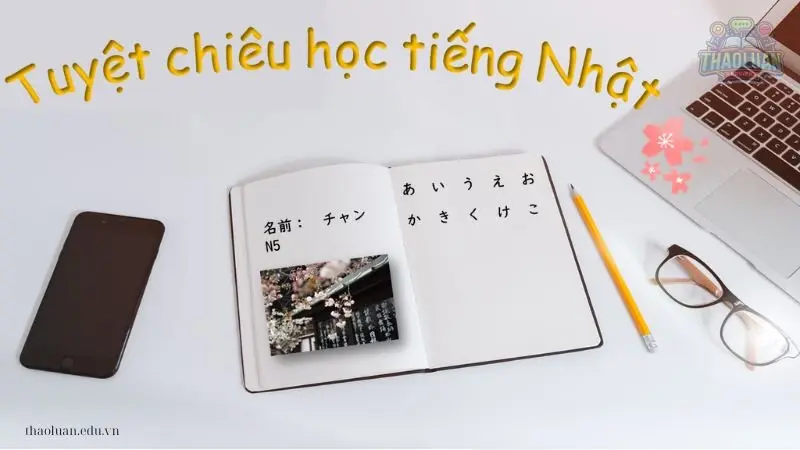 Tuyệt chiêu học tiếng Nhật
THAOLUAN
名前： チャン
N5
あ い う え お
か き く け こ
thaoluan.edu.vn